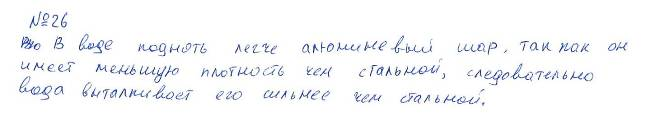 №26
В воде поднять легче алюминевый шар, так как он
имеет меньшую плотность чем стальной, следовательно
вода выталкивает его сильнее чем стальной.